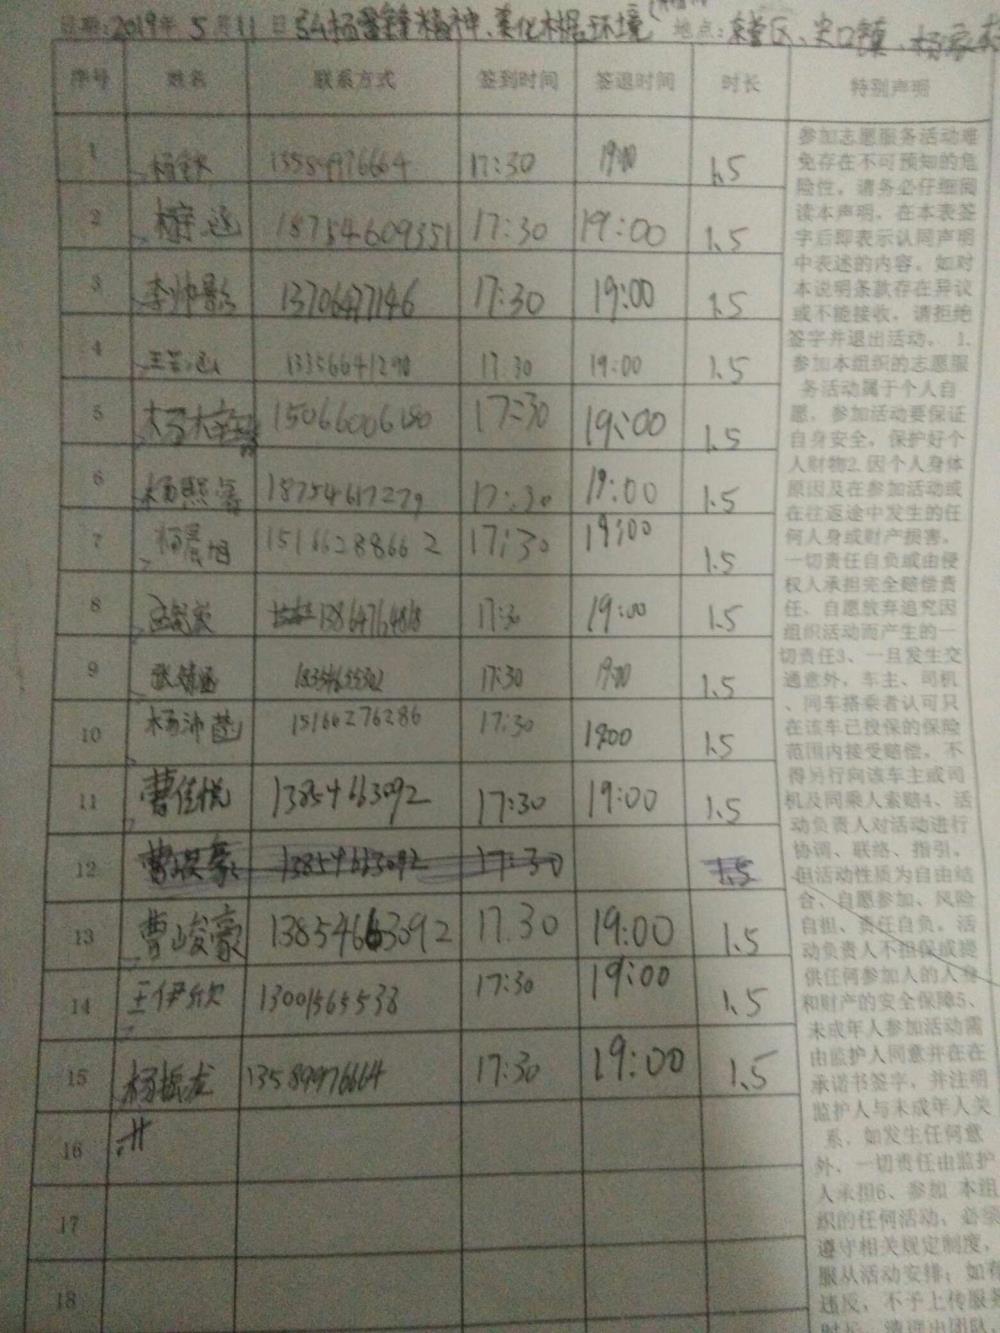 日期:2019年 5月11日 弘扬雷锋精神、美化村居环境 地点:东营区、史口镇、杨家
序号 姓名 联系方式 签到时间 签退时间 时长 特别声明
1 13589976664 17:30 19:00 1.5
2 18754609351 17:30 19:00 1.5
3 李帅 13706477146 17:30 19:00 1.5
4 13356641290 17:30 19:00 1.5
5 15066006180 17:30 19:00 1.5
6 杨照 18754617279 17:30 19:00 1.5
7 杨晨旭 15166288662 17:30 19:00 1.5
8 13864764818 17:30 19:00 1.5
9 张 17:30 19:00 1.5
10 杨沛 15166276286 17:30 19:00 1.5
11 曹佳悦 13854663092 17:30 19:00 1.5
12 13854663092 17:30 1.5
13 曹峻豪 13854663092 17:30 19:00 1.5
14 王伊欣 13001565538 17:30 19:00 1.5
15 杨振龙 13589976664 17:30 19:00 1.5
16
17
18
参加志愿服务活动难
免存在不可预知的危
险性，请务必仔细阅
读本声明，在本表签
字后即表示认同声明
中表述的内容。如对
本说明条款存在异议
或不能接收，请拒绝
签字并退出活动。 1.
参加本组织的志愿服
务活动属于个人自
愿，参加活动要保证
自身安全，保护好个
人财物2.因个人身体
原因及在参加活动或
在往返途中发生的任
何人身或财产损害，
一切责任自负或由侵
权人承担完全赔偿责
任，自愿放弃追究因
组织活动而产生的一
切责任3、一旦发生交
通意外，车主、司机
、同车搭乘者认可只
在该车已投保的保险
范围内接受赔偿，不
得另行向该车主或司
机及同乘人索赔4、活
动负责人对活动进行
协调、联络、指引。
但活动性质为自由结
合、自愿参加、风险
自担、责任自负。活
动负责人不担保或提
供任何参加人的人身
和财产的安全保障5、
未成年人参加活动需
由监护人同意并在在
承诺书签字，并注明
监护人与未成年人关
系，如发生任何意
外，一切责任由监护
人承担6、参加 本组
织的任何活动，必须
遵守相关规定制度，
服从活动安排；如有
违反，不予上传服务
时长，请退出团队。